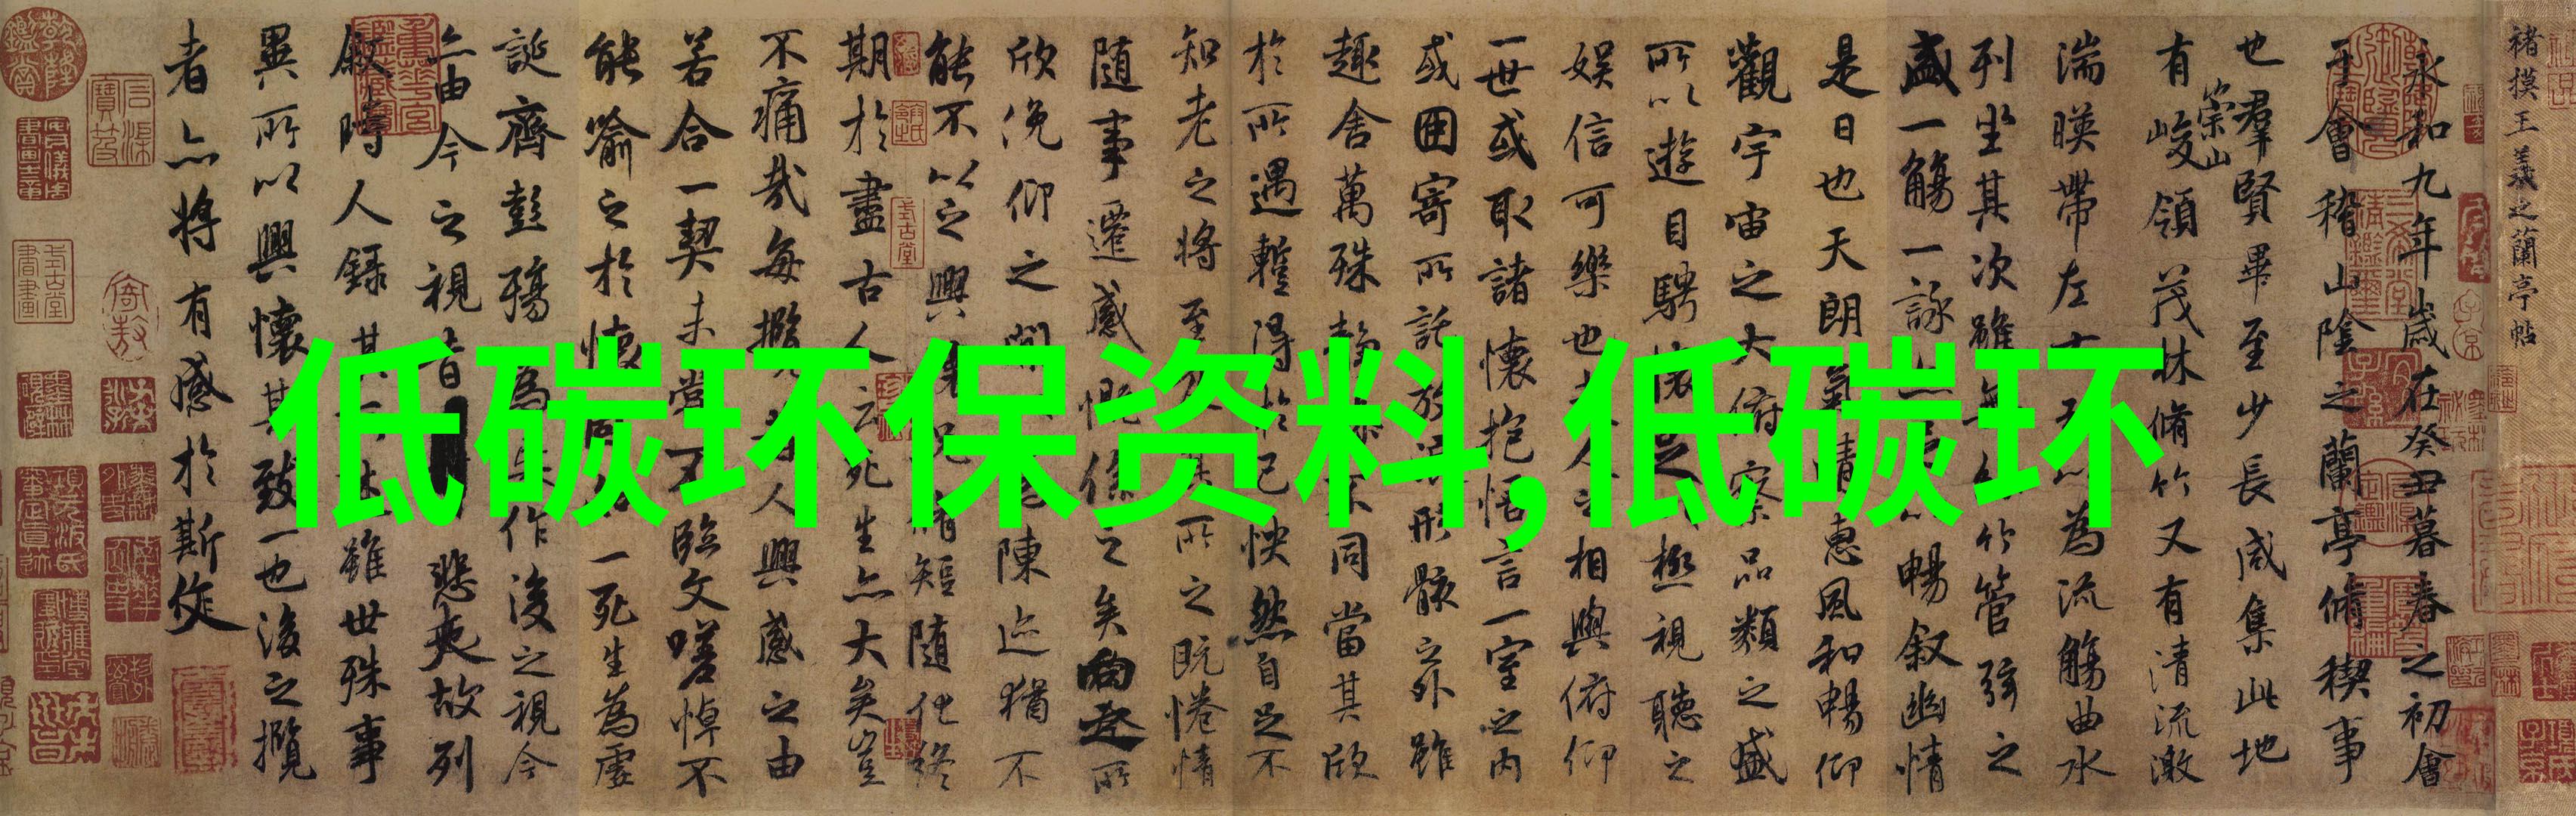 低碳环保资料,低碳环
褚摸王羲之蘭亭帖
永和九年歲在癸丑暮春之初會
于會稽山陰之蘭亭脩稧事
也羣賢畢至少長咸集此地
有崇山峻領茂林脩竹又有清流激
湍暎帶左右引以為流觴曲水
列坐其次雖無絲竹管弦之
盛一觴一詠亦足以暢叙幽情
是日也天朗氣清惠風和暢仰
觀宇宙之大俯察品類之盛
所以遊目騁懷足以極視聽之
娛信可樂也夫人之相與俯仰
一世或取諸懷抱悟言一室之內
或因寄所託放浪形骸之外雖
趣舍萬殊靜躁不同當其欣
於所遇蹔得於己怏然自足不
知老之將至及其所之既惓情
隨事遷感慨係之矣向之所
欣俛仰之間以為陳迹猶不
能不以之興懷況脩短隨化終
期於盡古人云死生亦大矣豈
不痛哉每攬昔人興感之由
若合一契未嘗不臨文嗟悼不
能喻之於懷固知一死生為虛
誕齊彭殤為妄作後之視今
亦由今之視昔悲夫故列
叙時人錄其所述雖世殊事
異所以興懷其致一也後之攬
者亦將有感於斯文